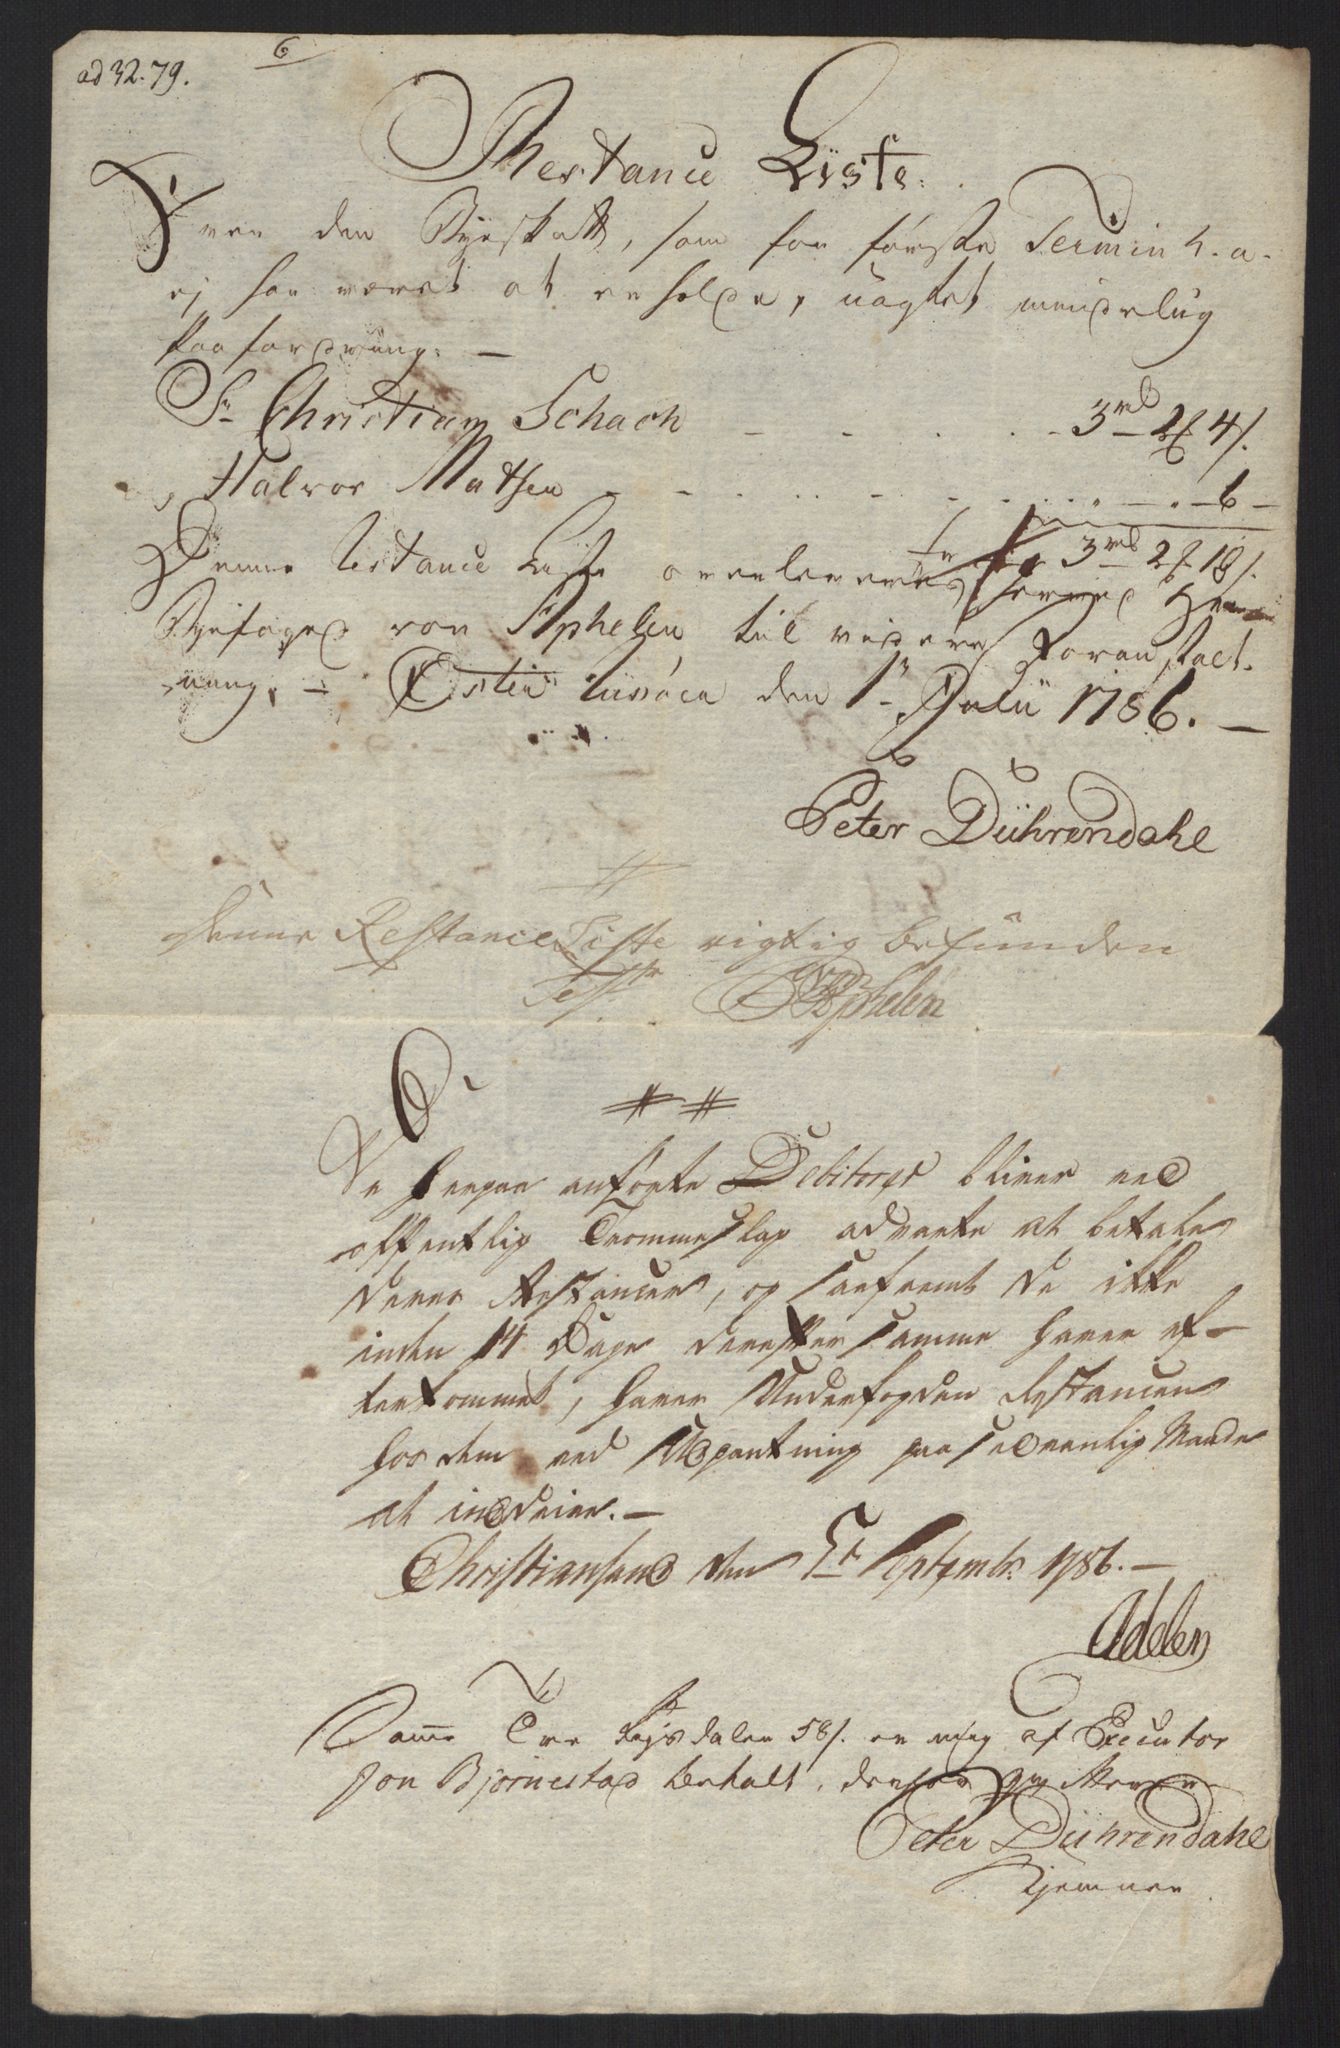 ad 32.79.
6
Restance Liste
Over den Byeskatt, som for første Termin h. a.
ej har været at erholde, uagtet mindelig
paafordring. —
Sr Christian Schach - - - 3rd 2f 4/.
" Halvor Matsen - - - 6 -
3rd 2f 18/.
Denne Restance Liste overleveres herved Herr
Byefoged von Aphelen til videre Foranstalt-
ning. - Øster Riisöer den 1r Julii 1786. —
Peter Dührendahl
Denne Restance Liste rigtig befunden
Test:
Aphelen
De herpaa anførte Debitores bliver ved
offentlig Trommeslag advarte at betale
deres Restancer, og saafremt de ikke
inden 14 Dage derefter samme haver ef-
terkommet, haver Underfogden Restancen
hos dem ved Udpantning paa sædvanlig Maade
at inddrive. —
Christiansand den 5t Septembr: 1786. —
Adeler
Samme Tre Rigsdaler 58/. er mig af Executor
Jon Bjørnestad betalt, derfor qvitterer
Peter Dührendahl
Kjemner